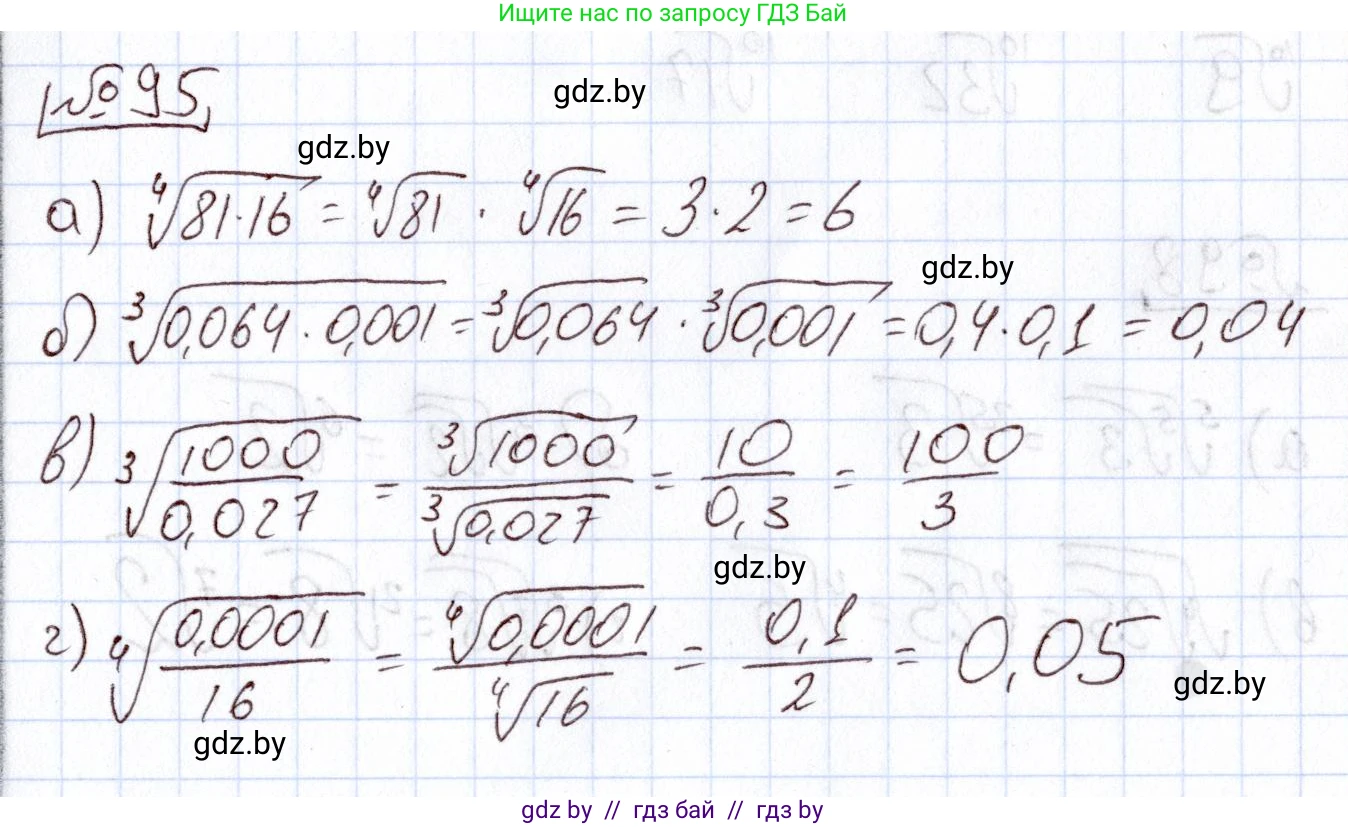 Ищите нас по запросу ГДЗ Бай
№95,
gdz.by
gdz.by
а) ⁴√(81·16) = ⁴√81 · ⁴√16 = 3·2 = 6
gdz.by
б) ³√(0,064·0,001) = ³√0,064 · ³√0,001 = 0,4·0,1 = 0,04
в) ³√(1000/0,027) = ³√1000/³√0,027 = 10/0,3 = 100/3
gdz.by
г) ⁴√(0,0001/16) = ⁴√0,0001/⁴√16 = 0,1/2 = 0,05
gdz.by
gdz.by
gdz by // гдз бай // гдз by